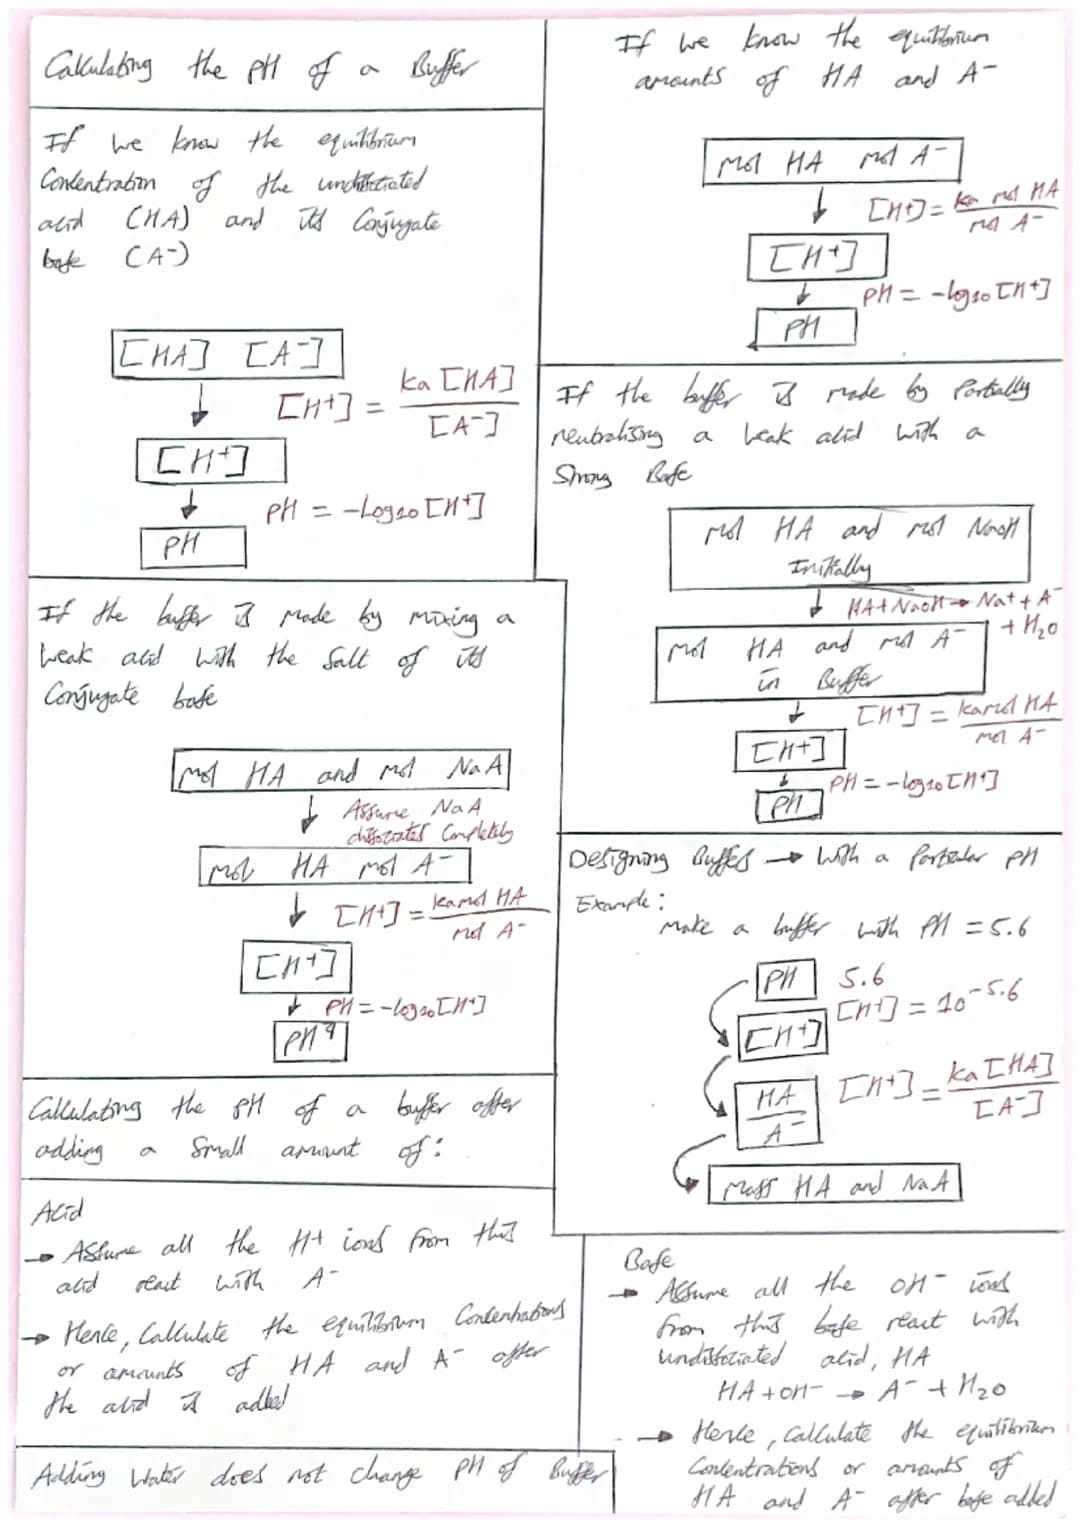 Calculating the pH of a Buffer
If we know the equilibrium
Concentration of the undissociated
acid (HA) and its Conjugate
base (A⁻)
[HA] [A⁻]
[H⁺] = ka [HA] / [A⁻]
[H⁺]
PH = -Log₁₀ [H⁺]
PH
If we know the equilibrium
amounts of HA and A⁻
mol HA mol A⁻
[H⁺] = ka mol HA / mol A⁻
[H⁺]
PH = -log₁₀ [H⁺]
PH
If the buffer is made by Partially
neutralising a weak acid with a
Strong Base
mol HA and mol NaOH
Initially
HA + NaOH → Na⁺ + A⁻
+ H₂O
mol HA and mol A⁻
in Buffer
[H⁺] = ka mol HA / mol A⁻
[H⁺]
PH = -log₁₀ [H⁺]
PH
If the buffer is made by mixing a
weak acid with the Salt of its
Conjugate base
mol HA and mol NaA
Assume NaA
dissociates Completely
mol HA mol A⁻
[H⁺] = ka mol HA / mol A⁻
[H⁺]
PH = -log₁₀ [H⁺]
PH
Designing Buffers → With a Particular PH
Example:
make a buffer with PH = 5.6
PH 5.6
[H⁺] = 10⁻⁵·⁶
[H⁺]
HA / A⁻
[H⁺] = ka [HA] / [A⁻]
Mass HA and NaA
Calculating the PH of a buffer after
adding a Small amount of:
Acid
→ Assume all the H⁺ ions from this
acid react with A⁻
→ Hence, Calculate the equilibrium Concentrations
or amounts of HA and A⁻ after
the acid is added
Adding Water does not change PH of Buffer
Base
→ Assume all the OH⁻ ions
from this base react with
undissociated acid, HA
HA + OH⁻ → A⁻ + H₂O
→ Hence, Calculate the equilibrium
Concentrations or amounts of
HA and A⁻ after base added